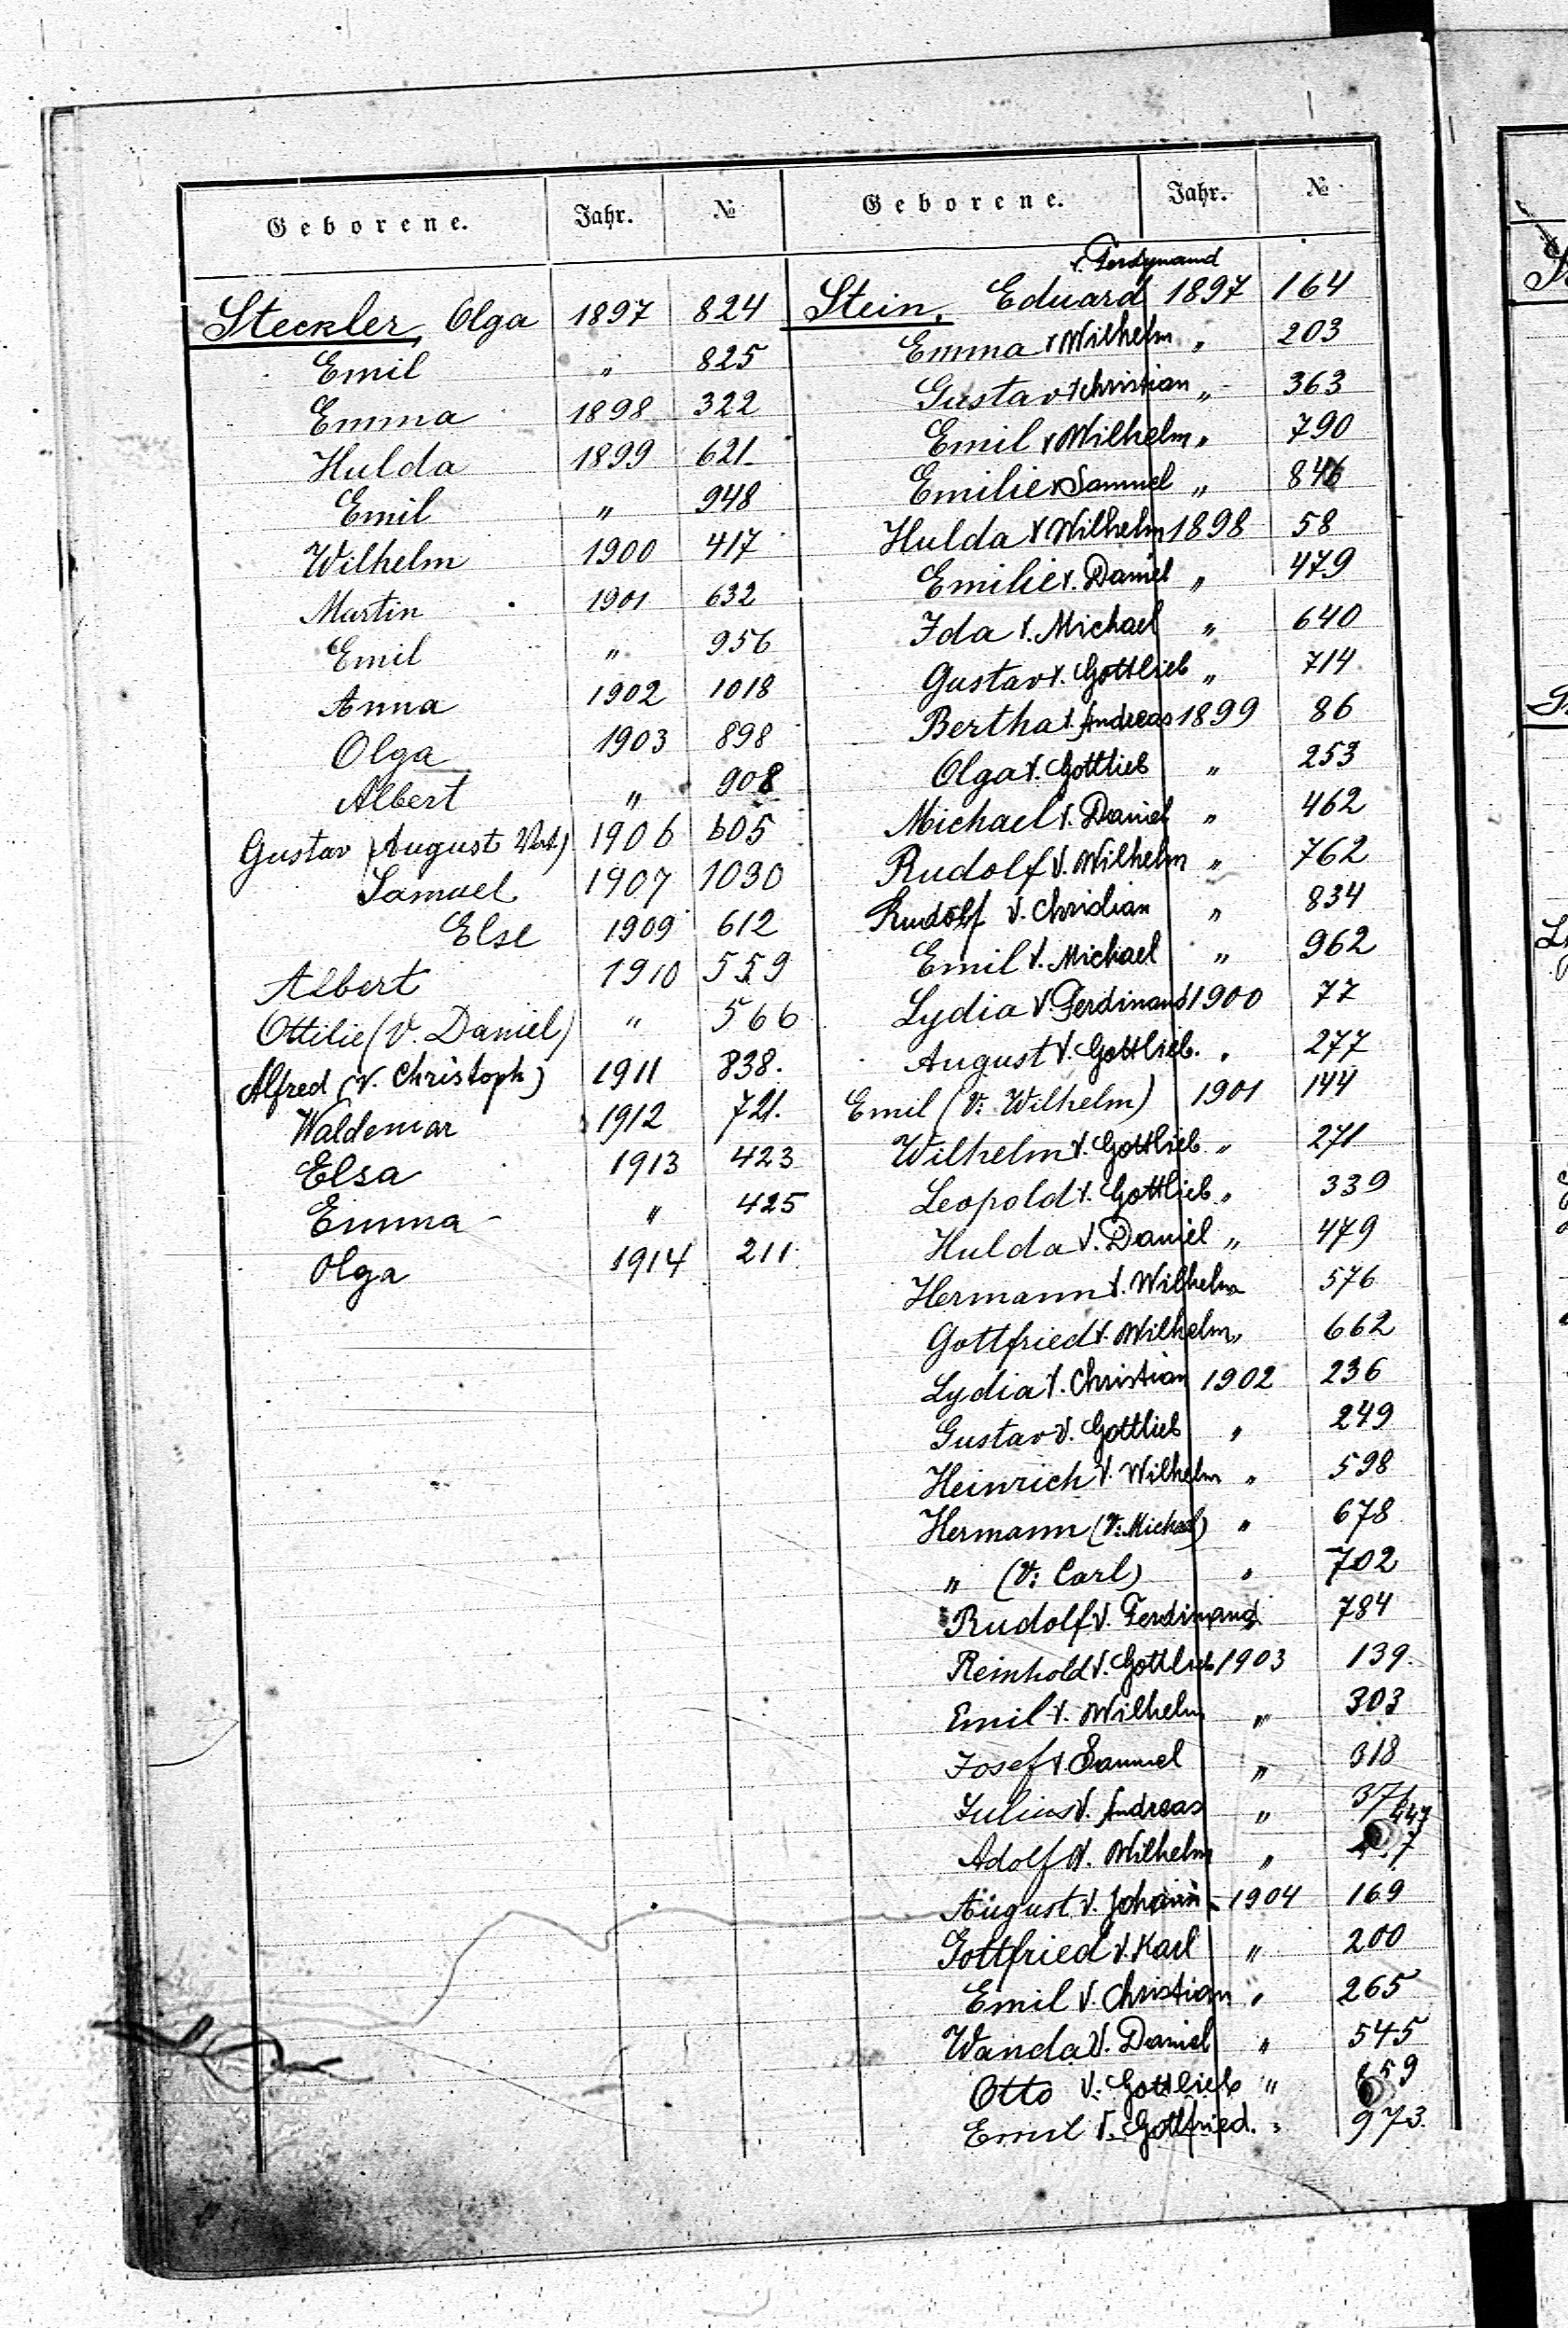 Geborene. Jahr. №
Steckler, Olga 1897 824
Emil " 825
Emma 1898 322
Hulda 1899 621
Emil " 948
Wilhelm 1900 417
Martin 1901 632
Emil " 956
Anna 1902 1018
Olga 1903 898
Albert " 908
Gustav (August Vat.) 1906 605
Samuel 1907 1030
Else 1909 612
Albert 1910 559
Ottilie (V. Daniel) " 566
Alfred (V. Christoph) 1911 838.
Waldemar 1912 721.
Elsa 1913 423
Emma " 425
Olga 1914 211
Geborene. Jahr. №
v. Ferdynand
Stein, Eduard 1897 164
Emma v Wilhelm " 203
Gustav v Christian " 363
Emil v Wilhelm " 790
Emilie v Samuel " 846
Hulda V Wilhelm 1898 58
Emilie v. Daniel " 479
Ida V. Michael " 640
Gustav v. Gottlieb " 714
Bertha V. Andreas 1899 86
Olga V. Gottlieb " 253
Michael V. Daniel " 462
Rudolf V. Wilhelm " 762
Rudolf V. Christian " 834
Emil V. Michael " 962
Lydia V. Ferdinand 1900 77
August V. Gottlieb. " 277
Emil (V: Wilhelm) 1901 144
Wilhelm V. Gottlieb " 271
Leopold V. Gottlieb " 339
Hulda V. Daniel " 479
Hermann V. Wilhelm 576
Gottfried V. Wilhelm " 662
Lydia V. Christian 1902 236
Gustav V. Gottlieb " 249
Heinrich V. Wilhelm " 598
Hermann (V: Michael) " 678
" (V: Carl) " 702
Rudolf V. Ferdinand 784
Reinhold V. Gottlieb 1903 139
Emil V. Wilhelm " 303
Josef V. Samuel " 318
Julius V. Andreas " 371
Adolf V. Wilhelm " 447
August V. Johann 1904 169
Gottfried V. Karl " 200
Emil V. Christian " 265
Wanda V. Daniel " 545
Otto V. Gottlieb "
Emil V. Gottfried. " 973.